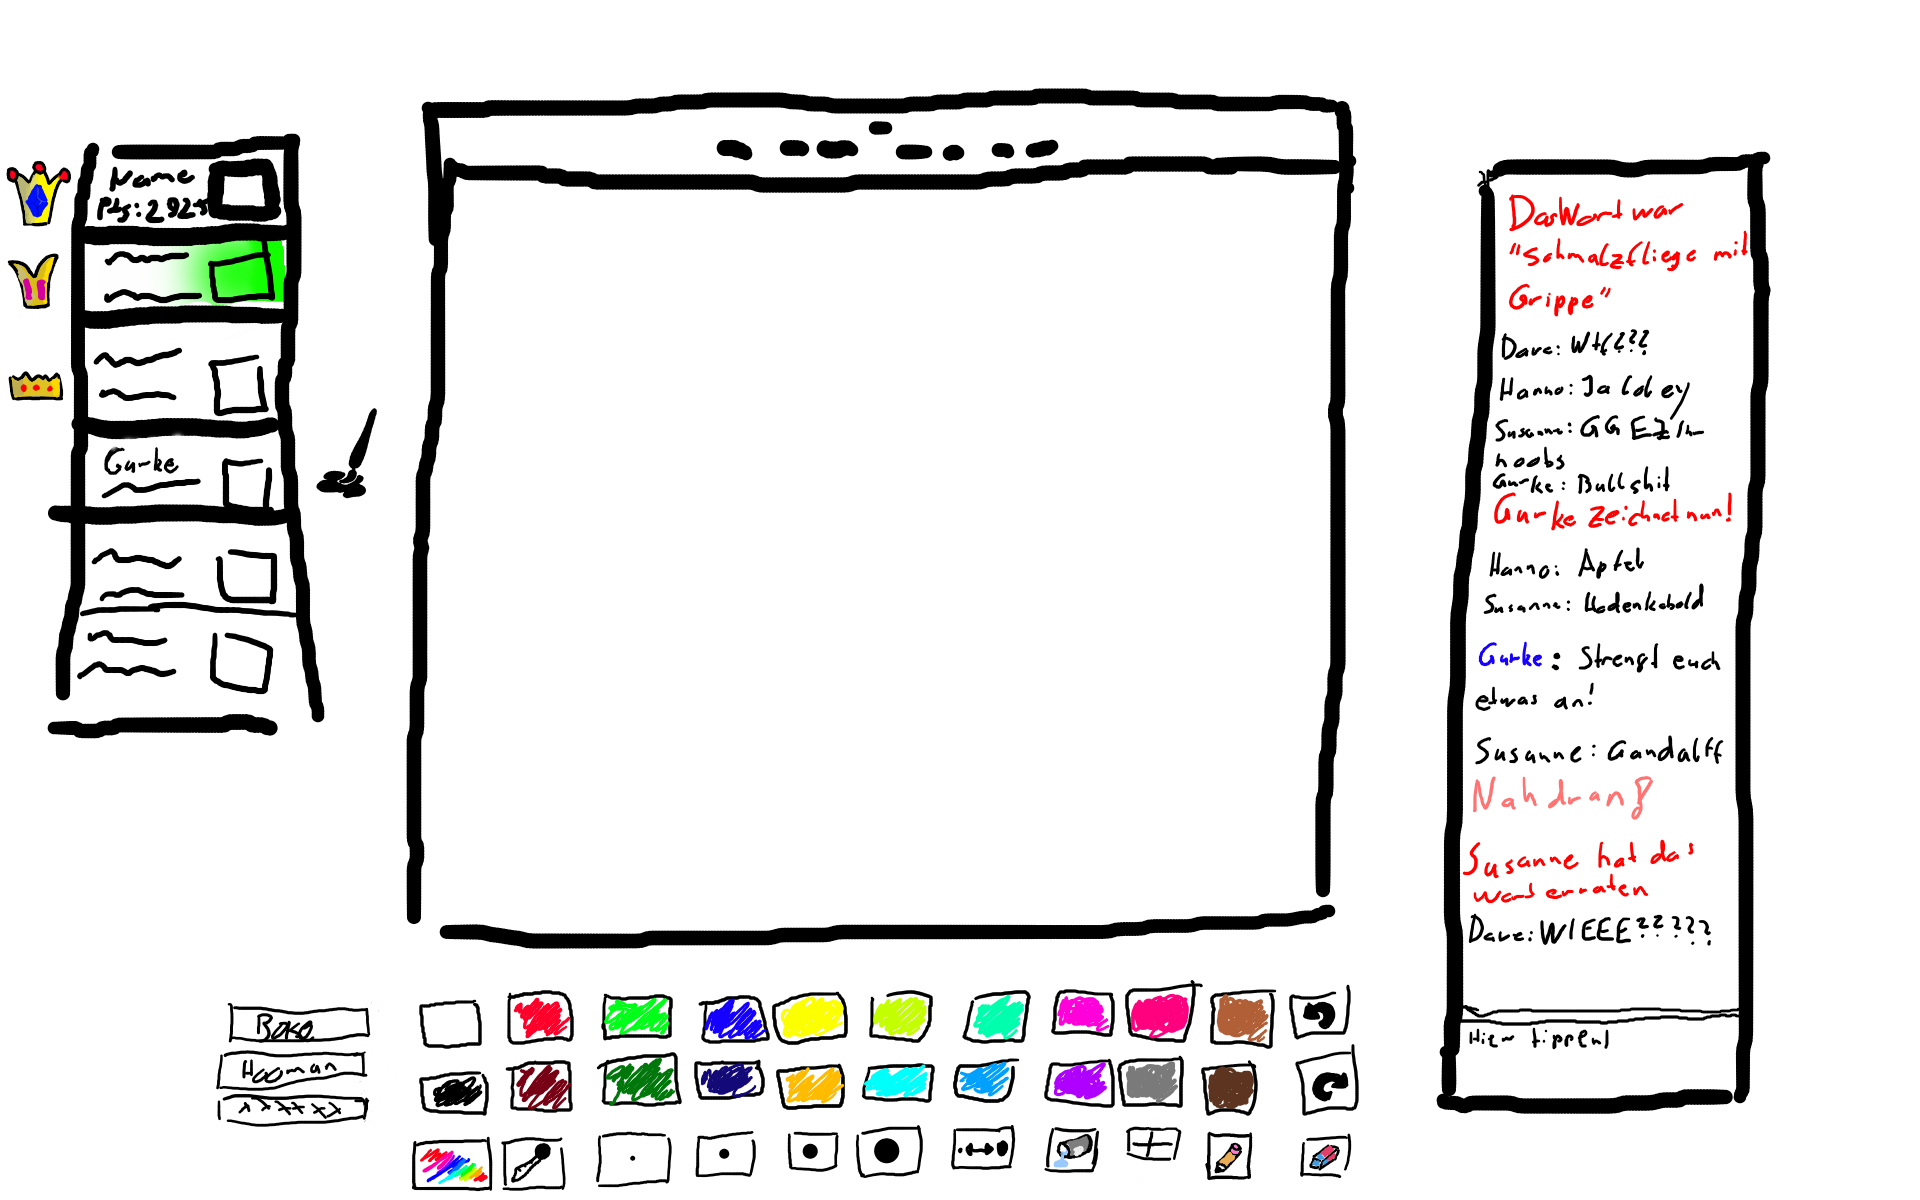 Name
Pts: 2925
Gurke
Das Wort war
"Schmalzfliege mit
Grippe"
Dave: Wtf???
Hanno: Ja
Susanne: GG EZ
noobs
Gurke: Bullshit
Gurke zeichnet nun!
Hanno: Apfel
Susanne: Hodenkobold
Gurke: Strengt euch
etwas an!
Susanne: Gandalff
Nah dran
Susanne hat das
Wort erraten
Dave: WIEEE?????
Hier tippen!
Hooman